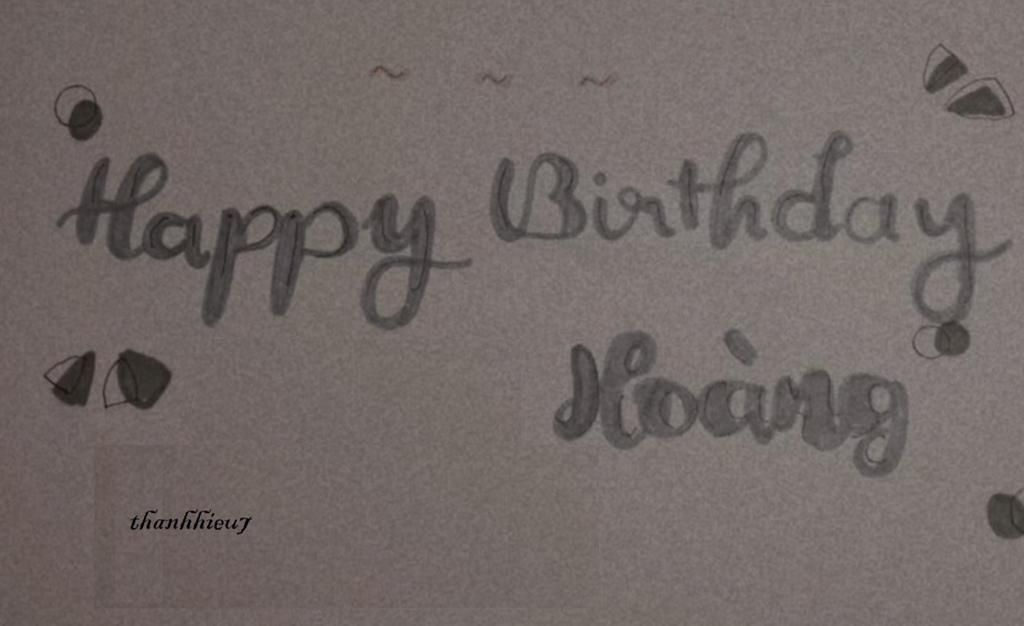 Happy Birthday
Hoàng
thanhhieu7